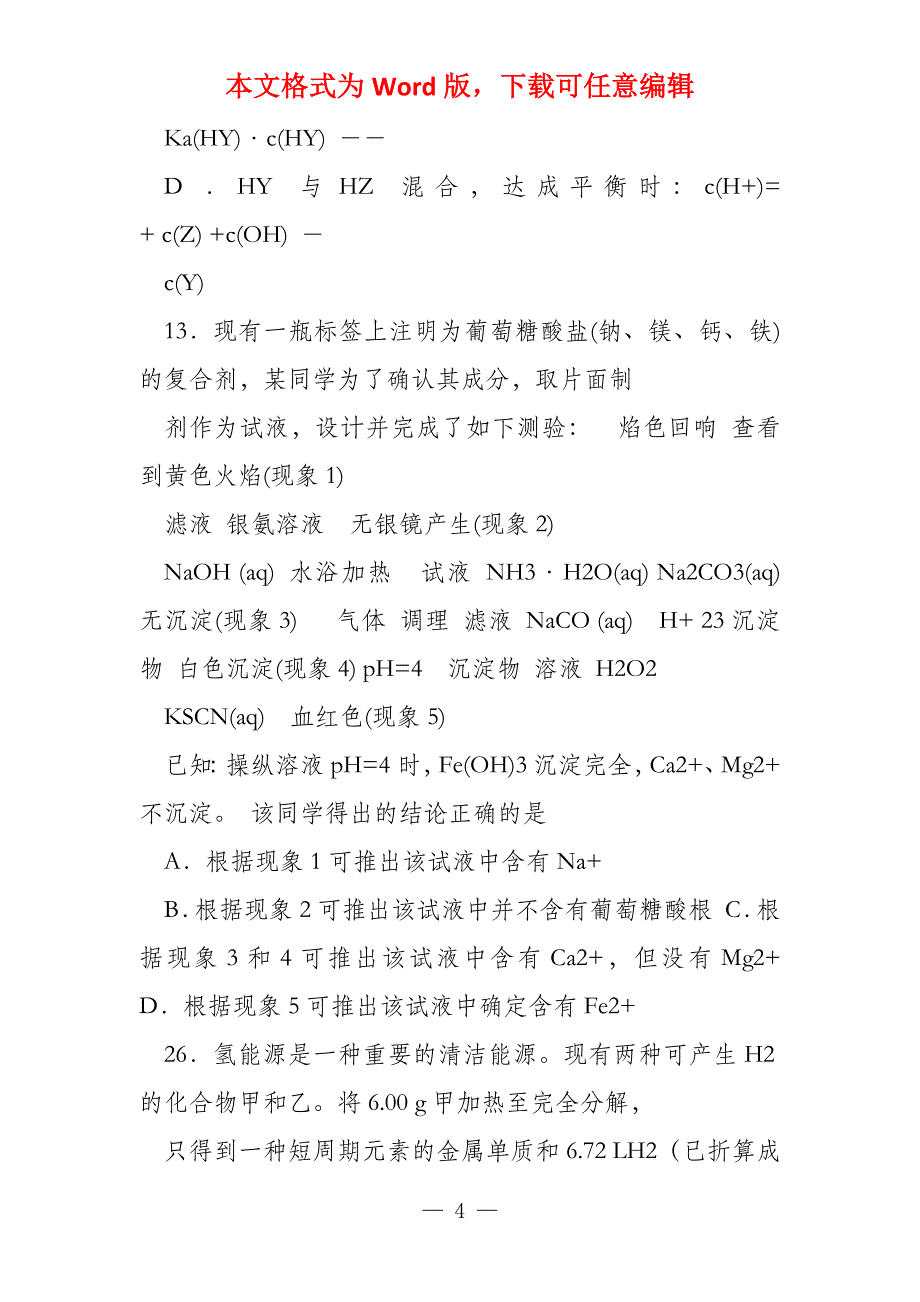 本文格式为 Word 版，下载可任意编辑
Ka(HY)·c(HY) －－
D．HY 与 HZ 混合，达成平衡时：c(H+)=
+ c(Z) +c(OH) －
c(Y)
13．现有一瓶标签上注明为葡萄糖酸盐(钠、镁、钙、铁)
的复合剂，某同学为了确认其成分，取片面制
剂作为试液，设计并完成了如下测验： 焰色回响 查看
到黄色火焰(现象 1)
滤液 银氨溶液 无银镜产生(现象 2)
NaOH (aq) 水浴加热 试液 NH3·H2O(aq) Na2CO3(aq)
无沉淀(现象 3) 气体 调理 滤液 NaCO (aq) H+ 23 沉淀
物 白色沉淀(现象 4) pH=4 沉淀物 溶液 H2O2
KSCN(aq) 血红色(现象 5)
已知：操纵溶液 pH=4 时，Fe(OH)3 沉淀完全，Ca2+、Mg2+
不沉淀。 该同学得出的结论正确的是
A．根据现象 1 可推出该试液中含有 Na+
B．根据现象 2 可推出该试液中并不含有葡萄糖酸根 C．根
据现象 3 和 4 可推出该试液中含有 Ca2+，但没有 Mg2+
D．根据现象 5 可推出该试液中确定含有 Fe2+
26．氢能源是一种重要的清洁能源。现有两种可产生 H2
的化合物甲和乙。将 6.00 g 甲加热至完全分解，
只得到一种短周期元素的金属单质和 6.72 LH2（已折算成
— 4 —